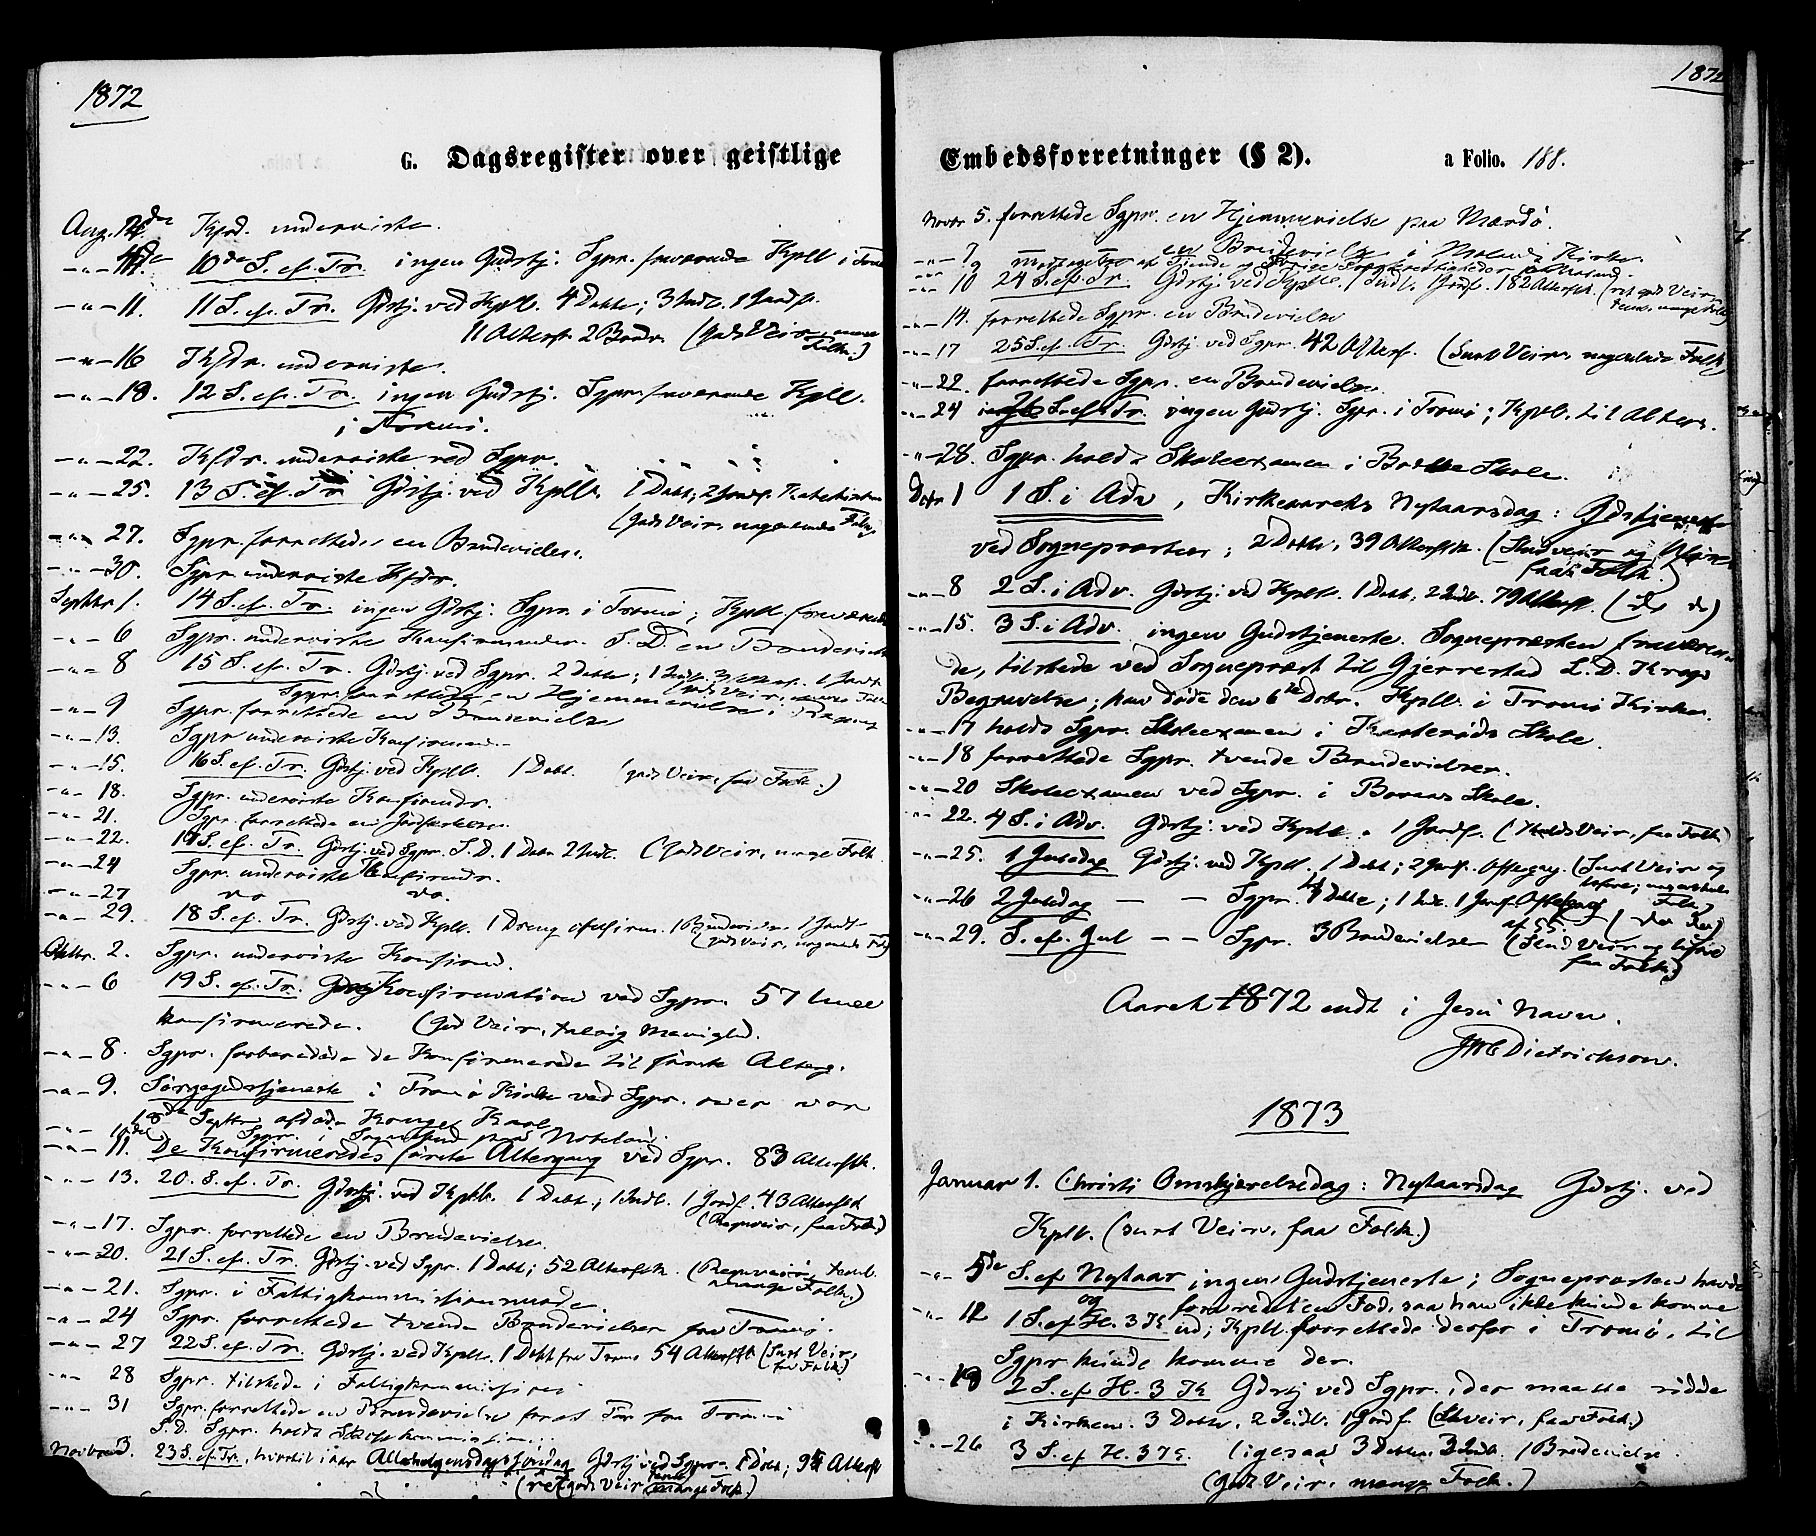 1872
G. Dagsregister over geistlige
Aug. Kfrd. underviste.
10de S. ef. Tr. ingen Gudstj. Sgpr. fraværende Kpll i
" 11. 11 S. ef. Tr. Gdstj. ved Kpll. 4 Døbte; 3 Indl. 1 Jordf.
11 Altergj. 2 Brudv. (Godt Veir, Folk.)
" 16 Kfdr. underviste.
" 18. 12 S. ef. Tr. ingen Gudstj. Sgpr. fraværende Kpll.
i Tromø.
" 22. Kfdr. underviste ved Sgpr.
" 25. 13 S. ef. Tr. Gdstj. ved Kpll. 1 Døbt; 2 Jordf.
(Godt Veir, nogenlunde Folk)
" 27. Sgpr. forrettede en Brudevielse.
" 30. Sgpr. underviste Kfdr.
Septbr 1. 14 S. ef. Tr. ingen Gdstj. Sgpr. i Tromø; Kpll. fraværende
" 6 Sgpr. underviste Konfirmander. S. D. en Brudevielse
" 8 15 S. ef. Tr. Gdstj. ved Sgpr. 2 Døbte; 1 Indl. 1 Jordf.
Sgpr. forrettede en Hjemmevielse i
" 9 Sgpr. forrettede en Brudevielse
" 13. Sgpr underviste Konfirmand.
" 15. 16 S. ef. Tr. Gdstj. ved Kpll. 1 Døbt. (godt Veir, faa Folk.)
" 18. Sgpr. underviste Konfirmdr.
" 21. Sgpr. forrettede en Jordfæstelse.
" 22. 17 S. ef. Tr. Gdstj. ved Sgpr. S. D. 1 Døbt 2 Indl. (Godt Veir, mange Folk.
" 24 Sgpr. underviste Konfirmdr.
" 27 do do.
" 29. 18 S. ef. Tr. Gdstj. ved Kpll. 1 Dreng 1 Brudevielse 1 Jordf.
(godt Veir, nogenlunde Folk)
Oktbr. 2. Sgpr. underviste Konfirmd.
" 6 19 S. ef. Tr. Konfirmation ved Sgpr. 57 bleve
konfirmerede. (God Veir, talrig Menighd.
" 8. Sgpr. forberedede de Konfirmerede til første Alterg.
" 9. Sørgegudstjeneste i Tromø Kirke ved Sgpr. over vor
18de Septbr afdøde Konge Karl
" 10de Sgpr. i Sognebud paa
" 11. De Konfirmeredes første Altergang ved Sgpr. 83 Altergstk.
" 13. 20. S. ef. Tr. Gdstj. ved Kpll. 1 Døbt; 1 Indl. 1 Jordf. 43 Altergstk
(Regnveir, faa Folk)
" 17. Sgpr. forrettede en Brudevielse.
" 20. 21 S. ef. Tr. Gdstj. ved Sgpr. 1 Døbt; 52 Altergstk. (Regnveir, teml.
mange Folk.)
" 21. Sgpr. i Fattigkommissionsmøde.
" 24 Sgpr. forrettede tvende Brudevielser fra Tromø.
" 27 22 S. ef. Tr. Gdstj. ved Kpll. 1 Døbt fra Tromø 54 Altergstk (Surt Veir,
faa Folk.)
" 28 Sgpr. tilstede i Fattigkommission
" 31 Sgpr. forrettede en Brudevielse for et Par fra Tromø
S. D. Sgpr. holdt Skolekommission
Novbr 3. 23 S. ef. Tr., hvortil i aar Allehelgensdags søndag Gdstj ved Sgpr. Døbt; Altergst
(ret godt Veir mange Folk.)
1872
Embedsforretninger (§ 2). a Folio. 188.
Novbr 5. forrettede Sgpr. en Hjemmevielse paa Mærdø.
" 7 en Brudevielse i Kirke.
" 9 af Tiende og øvrige
" 10 24 S. ef. Tr. Gdstj. ved Kpll. 1 Indl. 1 Jordf. 182 Altergstk. (ret godt Veir,
teml. mange Folk)
" 14. forrettede Sgpr. en Brudevielse
" 17 25 S. ef. Tr. Gdstj. ved Sgpr. 42 Altergj. (Surt Veir, nogenlunde Folk)
" 22. forrettede Sgpr. en Brudevielse.
" 24 26 S. ef. Tr. ingen Gudstj. Sgpr. i Tromø; Kpll. til Alters.
" 28. Sgpr. holdt Skoleexamen i Skole.
Debr 1 1 S. i Adv, Kirkeaarets Nytaarsdag: Gdstjeneste
ved Sognepræsten; 2 Døbte, 39 Altergstk. (Sludveir og
faa Folk.)
" 8 2 S. i Adv. Gdstj ved Kpll. 1 Døbt, 2 Indl. 79 Altergst. (do do)
" 15. 3 S. i Adv. ingen Gudstjeneste. Sognepræsten fraværen-
de, tilstede ved Sognepræst til Gjerrestad L. D. Krogs
Begravelse; han døde den 6te Debr. Kpll. i Tromø Kirke.
" 17 holdt Sgpr. Skoleexamen i Skole.
" 18 forrettede Sgpr. tvende Brudevielser.
" 20 Skoleexamen ved Sgpr. i Skole.
" 22. 4 S. i Adv. Gdstj. ved Kpll. 1 Jordf. (Kolds Veir, faa Folk)
" 25. 1 Juledag Gdstj. ved Kpll. 1 Døbt; 2 Jordf. (Surt Veir og
Føre;
" 26 2 Juledag — — Sgpr. 4 Døbte; 1 Indl. 1 Jordf. (do do)
" 29. S. ef. Jul — — Sgpr. 3 Brudevielser (Slud Veir og
faa Folk.)
Aaret 1872 endt i Jesu Navn.
Dietrichson.
1873
Januar 1. Christi Omskjærelsedag: Nytaarsdag Gdstj. ved
Kpll. (surt Veir, faa Folk.)
" 5de S. ef Nytaar ingen Gudstjeneste; Sognepræsten havde
og forvredet en Fod, saa han ikke kunde komme
" 12 1 S. ef H. 3 K ud; Kpll. forrettede derfor i Tromø, til
Sgpr kunde komme der.
" 19 2 S. ef H. 3 K Gdstj ved Sgpr. der maatte sidde
i Kirken. 3 Døbte, 2 Indl. 1 Jordf. (Sl.veir, faa Folk.)
" 26 3 S. ef H. 3 K. ligesaa 3 Døbte, 3 Indl. 1 Brudevielse.
(godt Veir, mange Folk.)